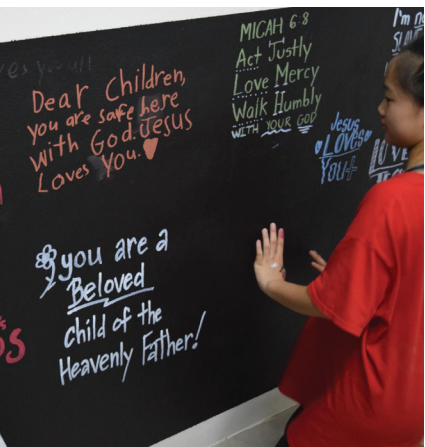 ves you all
Dear Children,
you are safe here
with God. Jesus
Loves you.
MICAH 6:8
Act Justly
Love Mercy
Walk Humbly
WITH YOUR GOD
I'm no
Jesus
LOVES
YOU
LOVE
you are a
Beloved
child of the
Heavenly Father!